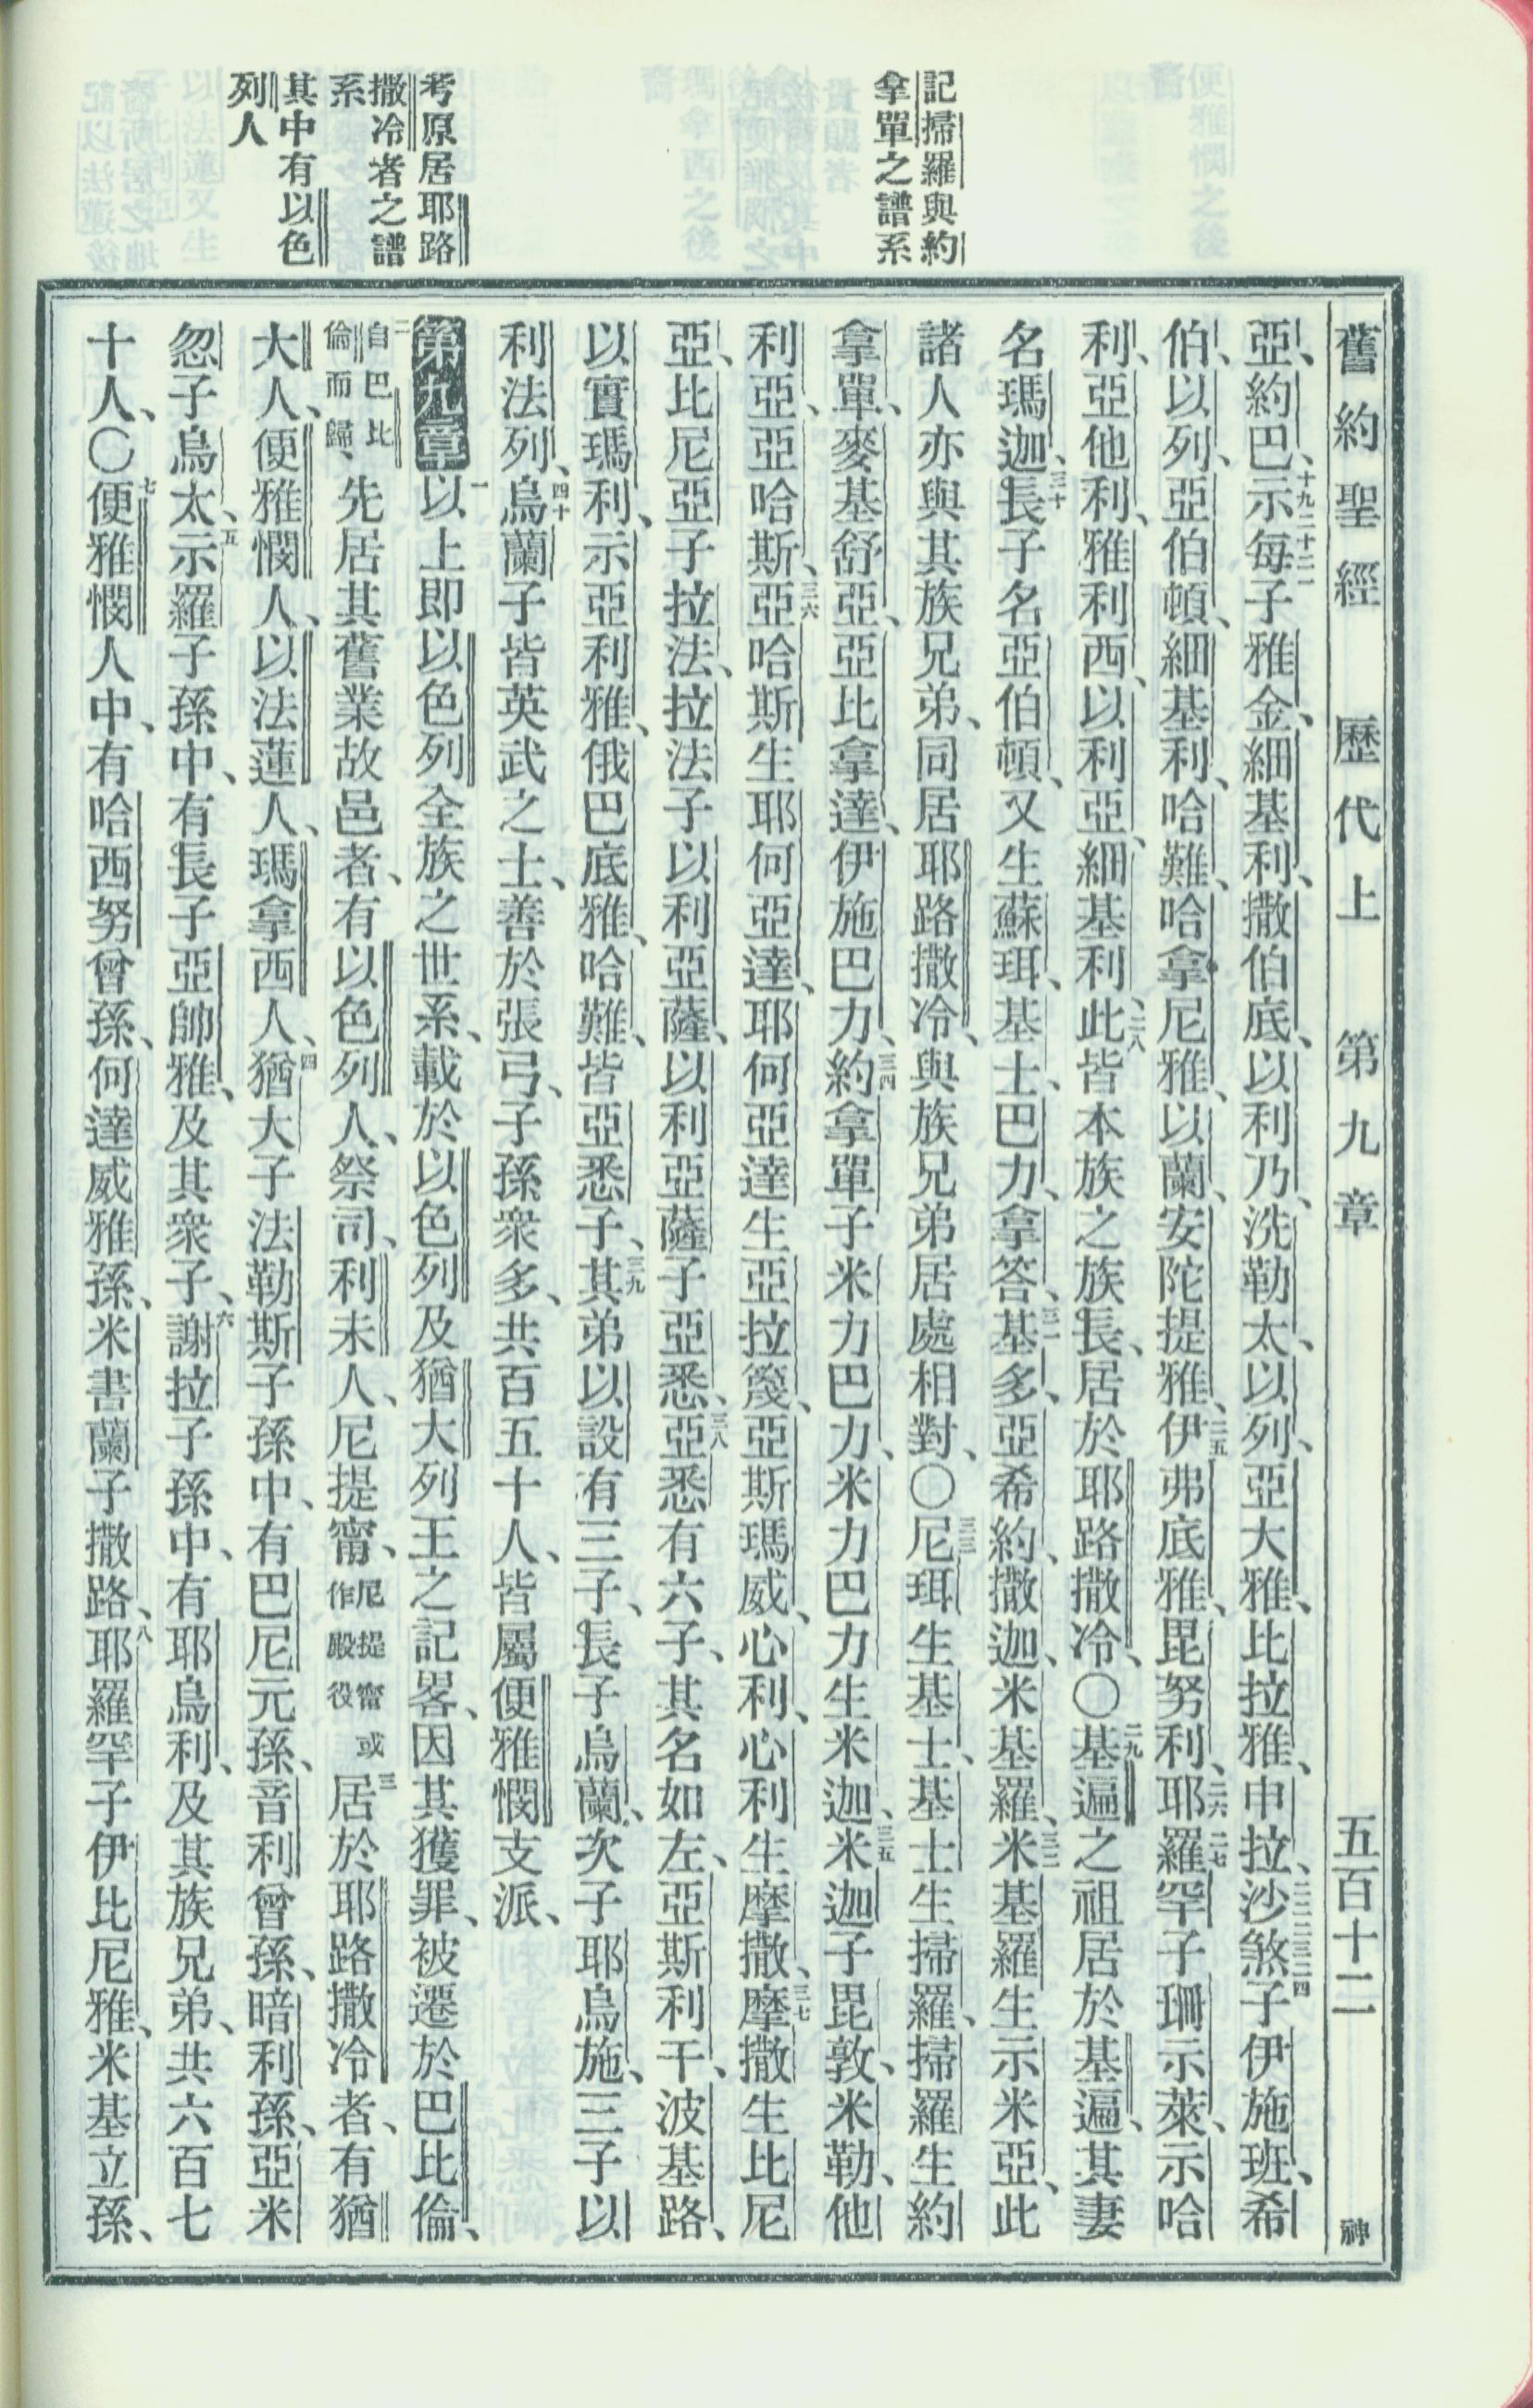 舊約聖經 歷代上 第九章 五百十二 神
記掃羅與約
拿單之譜系
考原居耶路
撒冷者之譜
系
其中有以色
列人
亞、約巴、十九二十二一示每子雅金、細基利、撒伯底、以利乃、洗勒太、以列、亞大雅、比拉雅、申拉、二二二三二四沙煞子伊施班、希
伯、以列、亞伯頓、細基利、哈難、哈拿尼雅、以蘭、安陀提雅、二五伊弗底雅、毘努利、二六二七耶羅罕子珊示萊、示哈
利、亞他利、雅利西、以利亞、細基利、二八此皆本族之族長、居於耶路撒冷、〇二九基遍之祖居於基遍、其妻
名瑪迦、三十長子名亞伯頓、又生蘇珥、基士、巴力、拿答、三一基多、亞希約、撒迦、米基羅、三二米基羅生示米亞、此
諸人亦與其族兄弟、同居耶路撒冷、與族兄弟居處相對、〇三三尼珥生基士、基士生掃羅、掃羅生約
拿單、麥基舒亞、亞比拿達、伊施巴力、三四約拿單子米力巴力、米力巴力生米迦、三五米迦子毘敦、米勒、他
利亞、亞哈斯、三六亞哈斯生耶何亞達、耶何亞達生亞拉篾、亞斯瑪威、心利、心利生摩撒、三七摩撒生比尼
亞、比尼亞子拉法、拉法子以利亞薩、以利亞薩子亞悉、三八亞悉有六子、其名如左、亞斯利干、波基路、
以實瑪利、示亞利雅、俄巴底雅、哈難、皆亞悉子、三九其弟以設有三子、長子烏蘭、次子耶烏施、三子以
利法列、四十烏蘭子皆英武之士、善於張弓、子孫衆多、共百五十人、皆屬便雅憫支派、
第九章 一以上即以色列全族之世系、載於以色列及猶大列王之記畧、因其獲罪、被遷於巴比倫、
二自巴比倫而歸、先居其舊業故邑者、有以色列人、祭司、利未人、尼提甯、尼提甯或作殿役三居於耶路撒冷者、有猶
大人、便雅憫人、以法蓮人、瑪拿西人、四猶大子法勒斯子孫中、有巴尼元孫、音利曾孫、暗利孫、亞米
忽子烏太、五示羅子孫中、有長子亞帥雅、及其衆子、六謝拉子孫中、有耶烏利、及其族兄弟、共六百七
十人、〇七便雅憫人中、有哈西努曾孫、何達威雅孫、米書蘭子撒路、八耶羅罕子伊比尼雅、米基立孫、